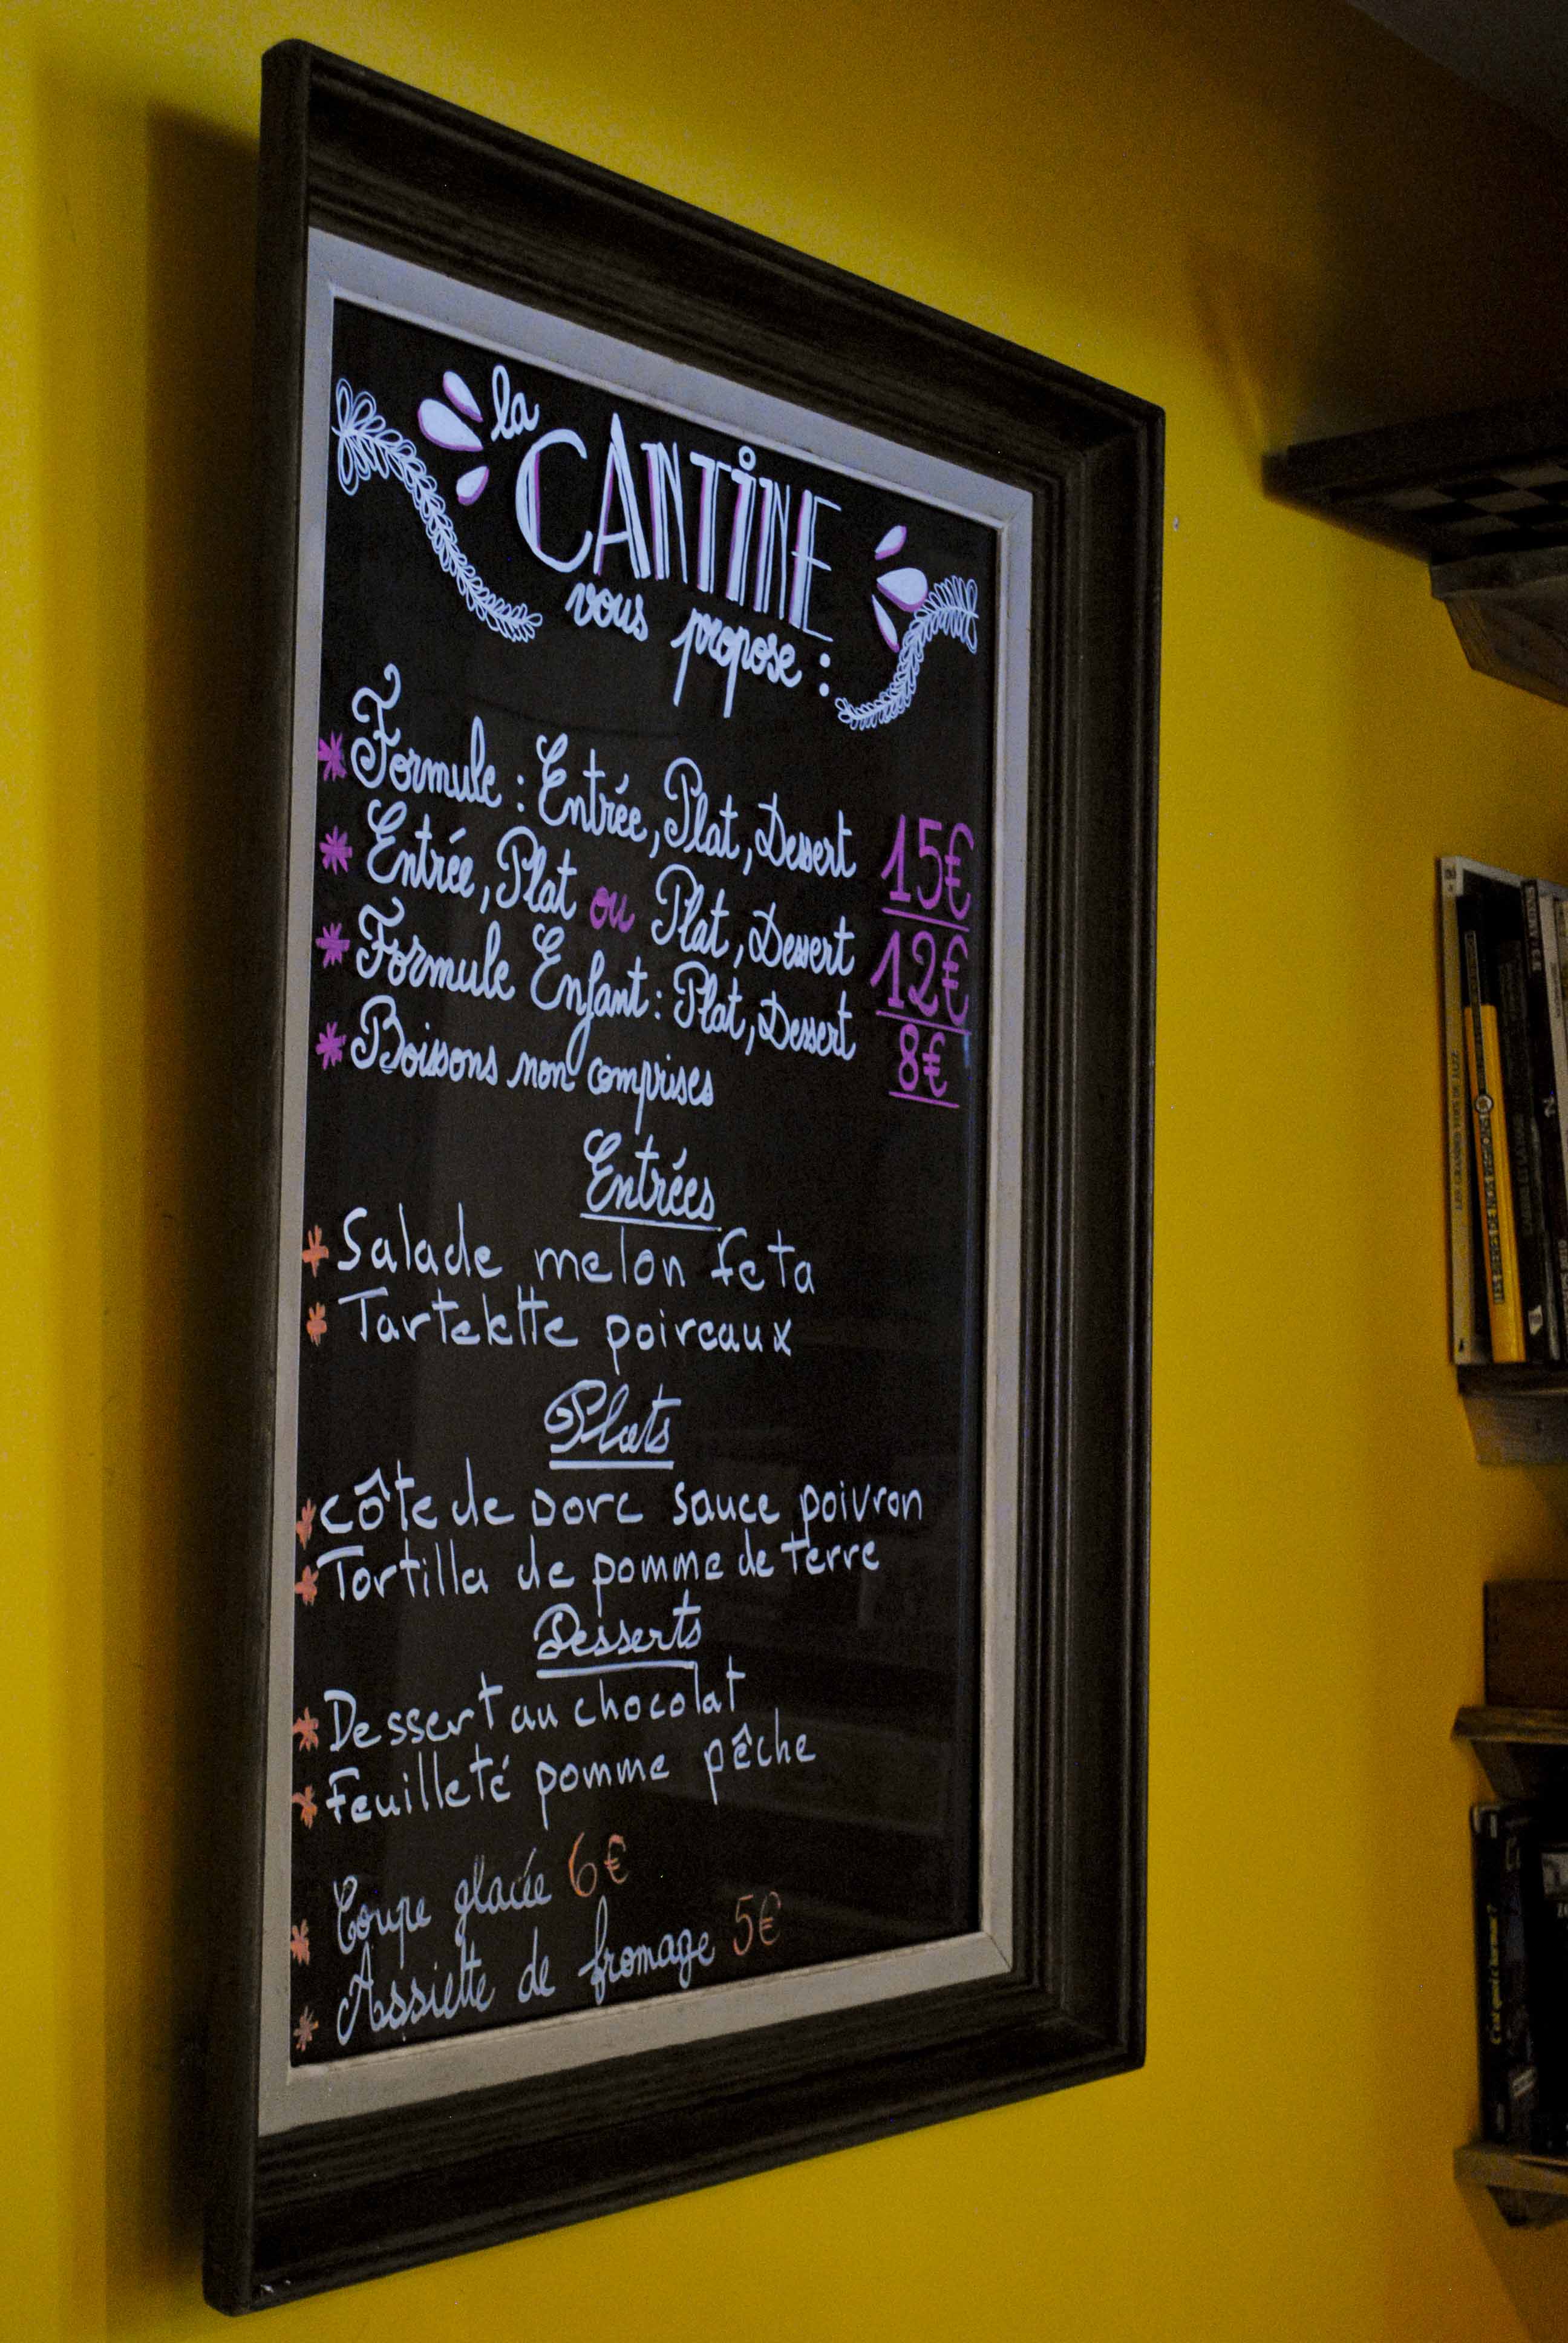 la
CANTINE
vous propose :
* Formule : Entrée, Plat, Dessert 15€
* Entrée, Plat ou Plat, Dessert 12€
* Formule Enfant : Plat, Dessert 8€
* Boissons non comprises
Entrées
* Salade melon feta
* Tartelette poireaux
Plats
* Côte de porc sauce poivron
* Tortilla de pomme de terre
Desserts
* Dessert au chocolat
* Feuilleté pomme pêche
* Coupe glacée 6€
* Assiette de fromage 5€
C'est qui c'terma ?